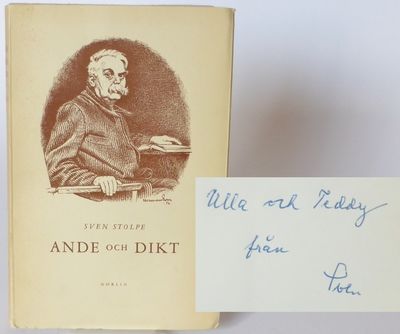 SVEN STOLPE
ANDE OCH DIKT
NORLIN
Ulla och Teddy
från
Sven